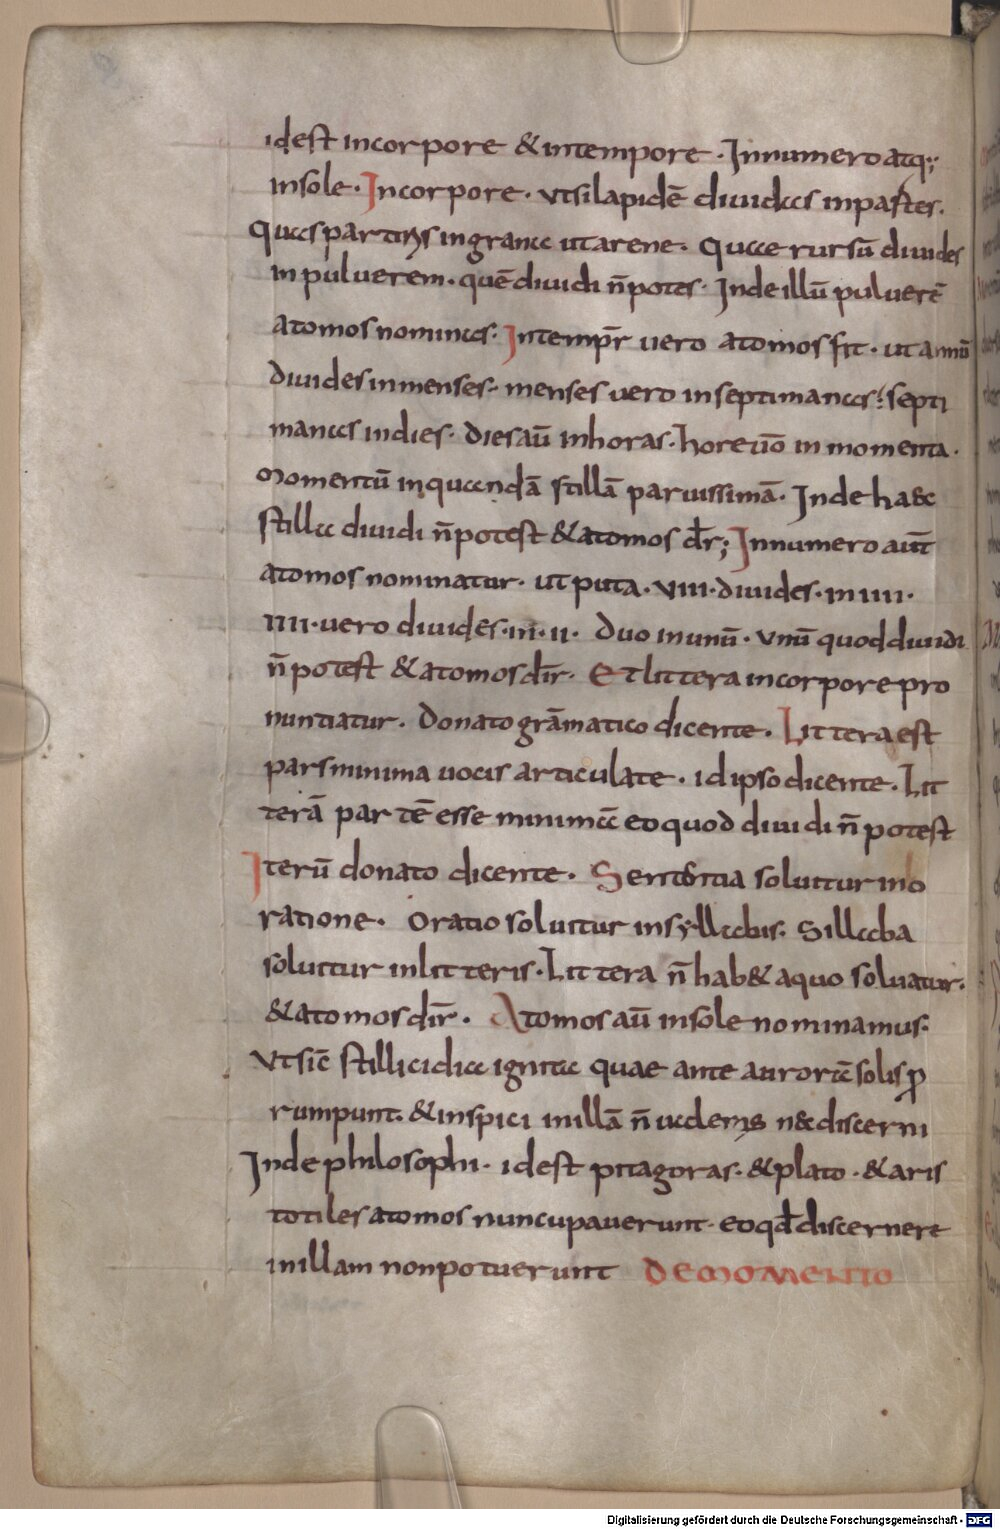 idest incorpore & intempore. Innumero atq;
insole. Incorpore. ut silapidē diuidas inpartes.
Quas partes in grana ut arene. Quae rursū diuides
in puluerem. quē diuidi n̄ potes. Inde illū puluerē
atomos nominas. Intempr̄ uero atomos fit. ut annū
diuides in menses. menses uero in septimanas. septi
manas indies. dies aū inhoras. hore uo in momenta.
Momentū inquandā stillā paruissimā. Inde haec
stilla diuidi n̄ potest & atomos dr̄; Innumero aut̄
atomos nominatur. ut puta. VIII. diuides. in IIII.
IIII. uero diuides. in. II. duo in unū. unū quod diuidi
n̄ potest & atomos dir̄. Et littera incorpore pro
nuntiatur. Donato grāmatico dicente. Littera est
pars minima uocis articulate. id ipso dicente. Lit
terā partē esse minimā eo quod diuidi n̄ potest
Iterū donato dicente. Sententia soluitur in o
ratione. Oratio soluitur in syllabis. Sillaba
soluitur in litteris. Littera n̄ hab& a quo soluatur.
& atomos dir̄. Atomos aū insole nominamus.
Ut sic̄ stillicidia ignita quae ante aurorā solis p
rumpunt. & inspici in illā n̄ ualemus n&discerni
Inde philosophi. idest pitagoras. & plato. & aris
totiles atomos nuncupauerunt. eo qd̄ discernere
in illam non potuerunt DE MOMENTO
Digitalisierung gefördert durch die Deutsche Forschungsgemeinschaft - DFG